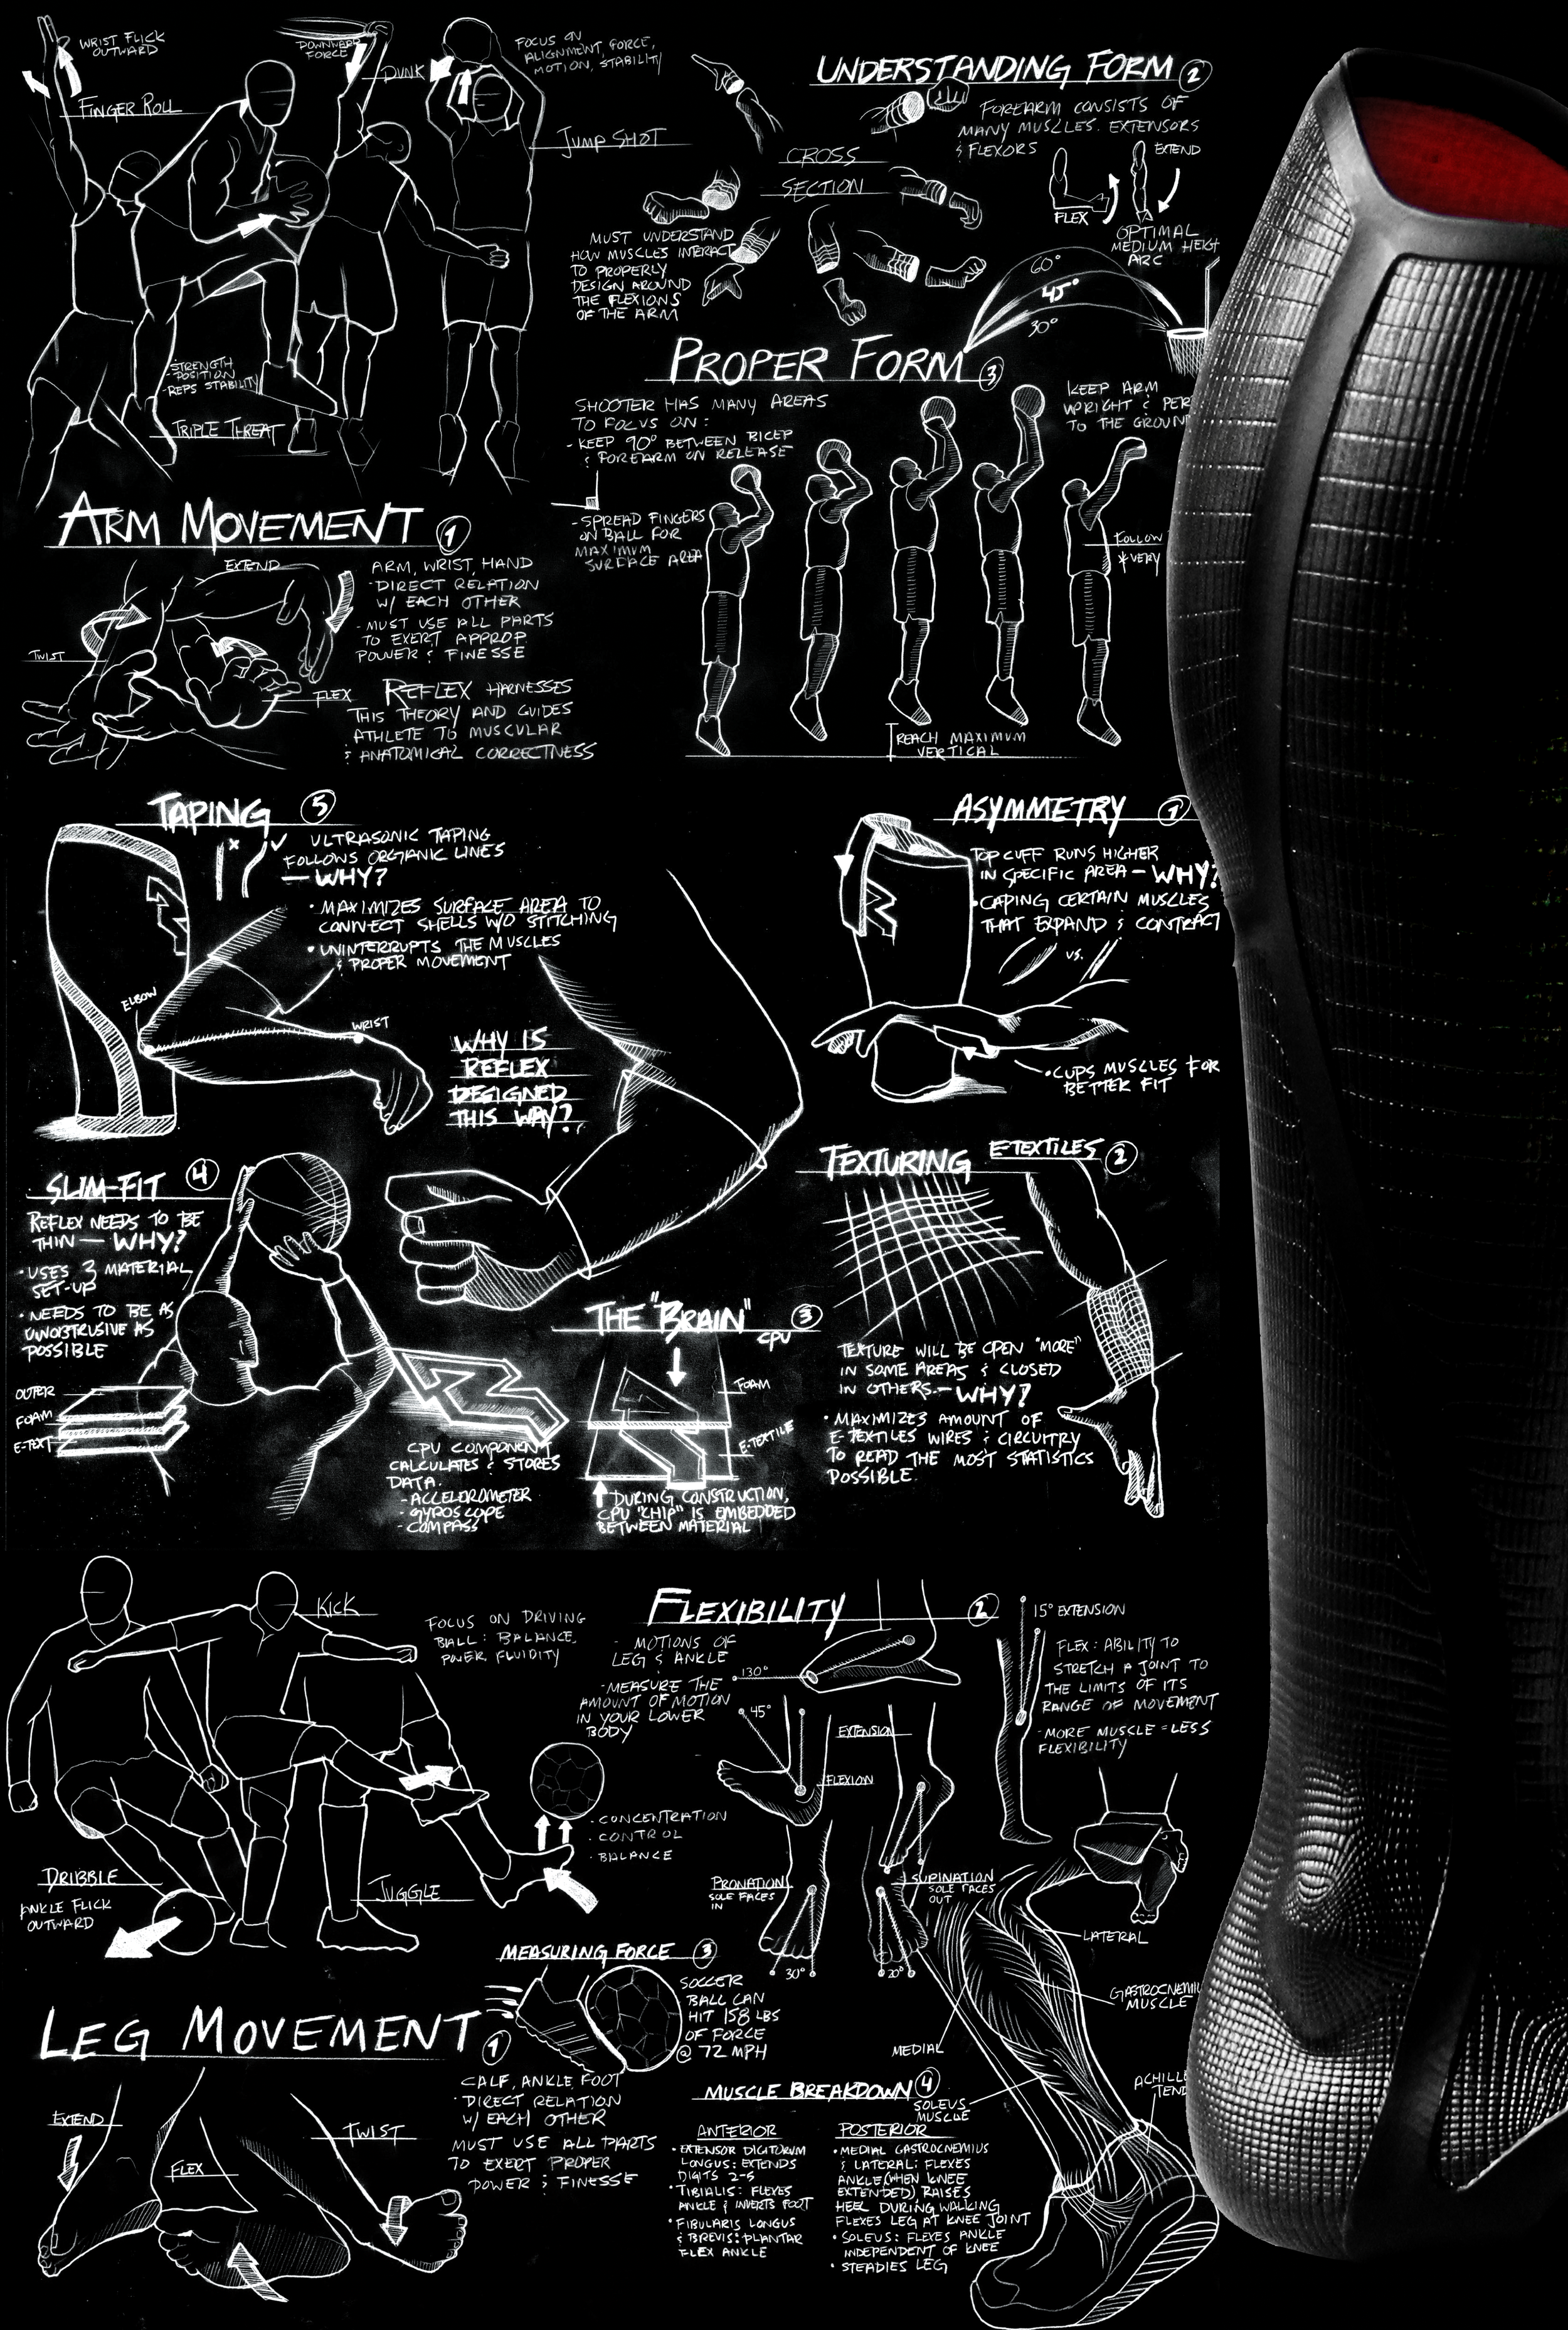 WRIST FLICK
OUTWARD
FINGER ROLL
DOWNWARD
FORCE
DUNK
FOCUS ON
ALIGNMENT, FORCE,
MOTION, STABILITY
JUMP SHOT
-STRENGTH
-POSITION
-REPS STABILITY
TRIPLE THREAT
UNDERSTANDING FORM 2
FOREARM CONSISTS OF
MANY MUSCLES. EXTENSORS
& FLEXORS
EXTEND
FLEX
CROSS
SECTION
MUST UNDERSTAND
HOW MUSCLES INTERACT
TO PROPERLY
DESIGN AROUND
THE FLEXIONS
OF THE ARM
OPTIMAL
MEDIUM HEIGH
ARC
60°
45°
30°
PROPER FORM 3
SHOOTER HAS MANY AREAS
TO FOCUS ON:
- KEEP 90° BETWEEN BICEP
& FOREARM ON RELEASE
- SPREAD FINGERS
ON BALL FOR
MAXIMUM
SURFACE AREA
KEEP ARM
UPRIGHT & PER
TO THE GROUN
FOLLOW
*VERY
REACH MAXIMUM
VERTICAL
ARM MOVEMENT 1
EXTEND
TWIST
FLEX
ARM, WRIST, HAND
-DIRECT RELATION
W/ EACH OTHER
-MUST USE ALL PARTS
TO EXERT APPROP.
POWER & FINESSE
REFLEX HARNESSES
THIS THEORY AND GUIDES
ATHLETE TO MUSCULAR
& ANATOMICAL CORRECTNESS
TAPING 5
ULTRASONIC TAPING
FOLLOWS ORGANIC LINES
— WHY?
• MAXIMIZES SURFACE AREA TO
CONNECT SHELLS W/O STITCHING
• UNINTERRUPTS THE MUSCLES
& PROPER MOVEMENT
ELBOW
WRIST
WHY IS
REFLEX
DESIGNED
THIS WAY?
ASYMMETRY 1
TOP CUFF RUNS HIGHER
IN SPECIFIC AREA — WHY?
• CAPING CERTAIN MUSCLES
THAT EXPAND & CONTRACT
VS.
• CUPS MUSCLES FOR
BETTER FIT
SLIM-FIT 4
REFLEX NEEDS TO BE
THIN — WHY?
• USES 3 MATERIAL
SET-UP
• NEEDS TO BE AS
UNOBTRUSIVE AS
POSSIBLE
OUTER
FOAM
E-TEXT
CPU COMPONENT
CALCULATES & STORES
DATA.
- ACCELEROMETER
- GYROSCOPE
- COMPASS
THE "BRAIN" 3
CPU
FOAM
E-TEXTILE
DURING CONSTRUCTION,
CPU "CHIP" IS EMBEDDED
BETWEEN MATERIAL
TEXTURING E-TEXTILES 2
TEXTURE WILL BE OPEN "MORE"
IN SOME AREAS & CLOSED
IN OTHERS. — WHY?
• MAXIMIZES AMOUNT OF
E-TEXTILES WIRES & CIRCUITRY
TO READ THE MOST STATISTICS
POSSIBLE.
KICK
FOCUS ON DRIVING
BALL: BALANCE,
POWER, FLUIDITY
DRIBBLE
ANKLE FLICK
OUTWARD
JUGGLE
• CONCENTRATION
• CONTROL
• BALANCE
FLEXIBILITY 2
- MOTIONS OF
LEG & ANKLE
-MEASURE THE
AMOUNT OF MOTION
IN YOUR LOWER
BODY
130°
45°
EXTENSION
FLEXION
15° EXTENSION
FLEX: ABILITY TO
STRETCH A JOINT TO
THE LIMITS OF ITS
RANGE OF MOVEMENT
-MORE MUSCLE = LESS
FLEXIBILITY
PRONATION
SOLE FACES
IN
SUPINATION
SOLE FACES
OUT
30°
20°
LATERAL
GASTROCNEMIU
MUSCLE
MEDIAL
SOLEUS
MUSCLE
ACHILLE
TEND
MEASURING FORCE 3
SOCCER
BALL CAN
HIT 158 LBS
OF FORCE
@ 72 MPH
LEG MOVEMENT 1
EXTEND
FLEX
TWIST
CALF, ANKLE, FOOT
• DIRECT RELATION
W/ EACH OTHER
MUST USE ALL PARTS
TO EXERT PROPER
POWER & FINESSE
MUSCLE BREAKDOWN 4
ANTERIOR
• EXTENSOR DIGITORUM
LONGUS: EXTENDS
DIGITS 2-5
• TIBIALIS: FLEXES
ANKLE & INVERTS FOOT
• FIBULARIS LONGUS
& BREVIS: PLANTAR
FLEX ANKLE
POSTERIOR
• MEDIAL GASTROCNEMIUS
& LATERAL: FLEXES
ANKLE (WHEN KNEE
EXTENDED) RAISES
HEEL DURING WALKING
FLEXES LEG AT KNEE JOINT
• SOLEUS: FLEXES ANKLE
INDEPENDENT OF KNEE
• STEADIES LEG